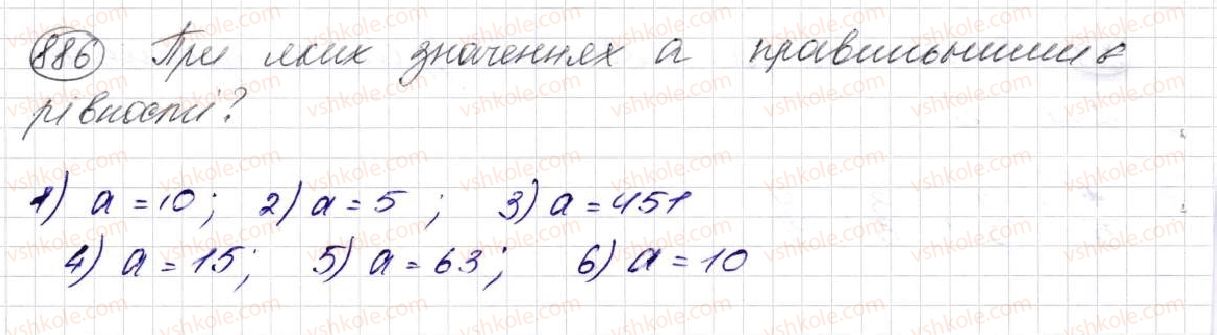 886 При яких значеннях а правильними є
рівності?
1) a = 10; 2) a = 5; 3) a = 451
4) a = 15; 5) a = 63; 6) a = 10